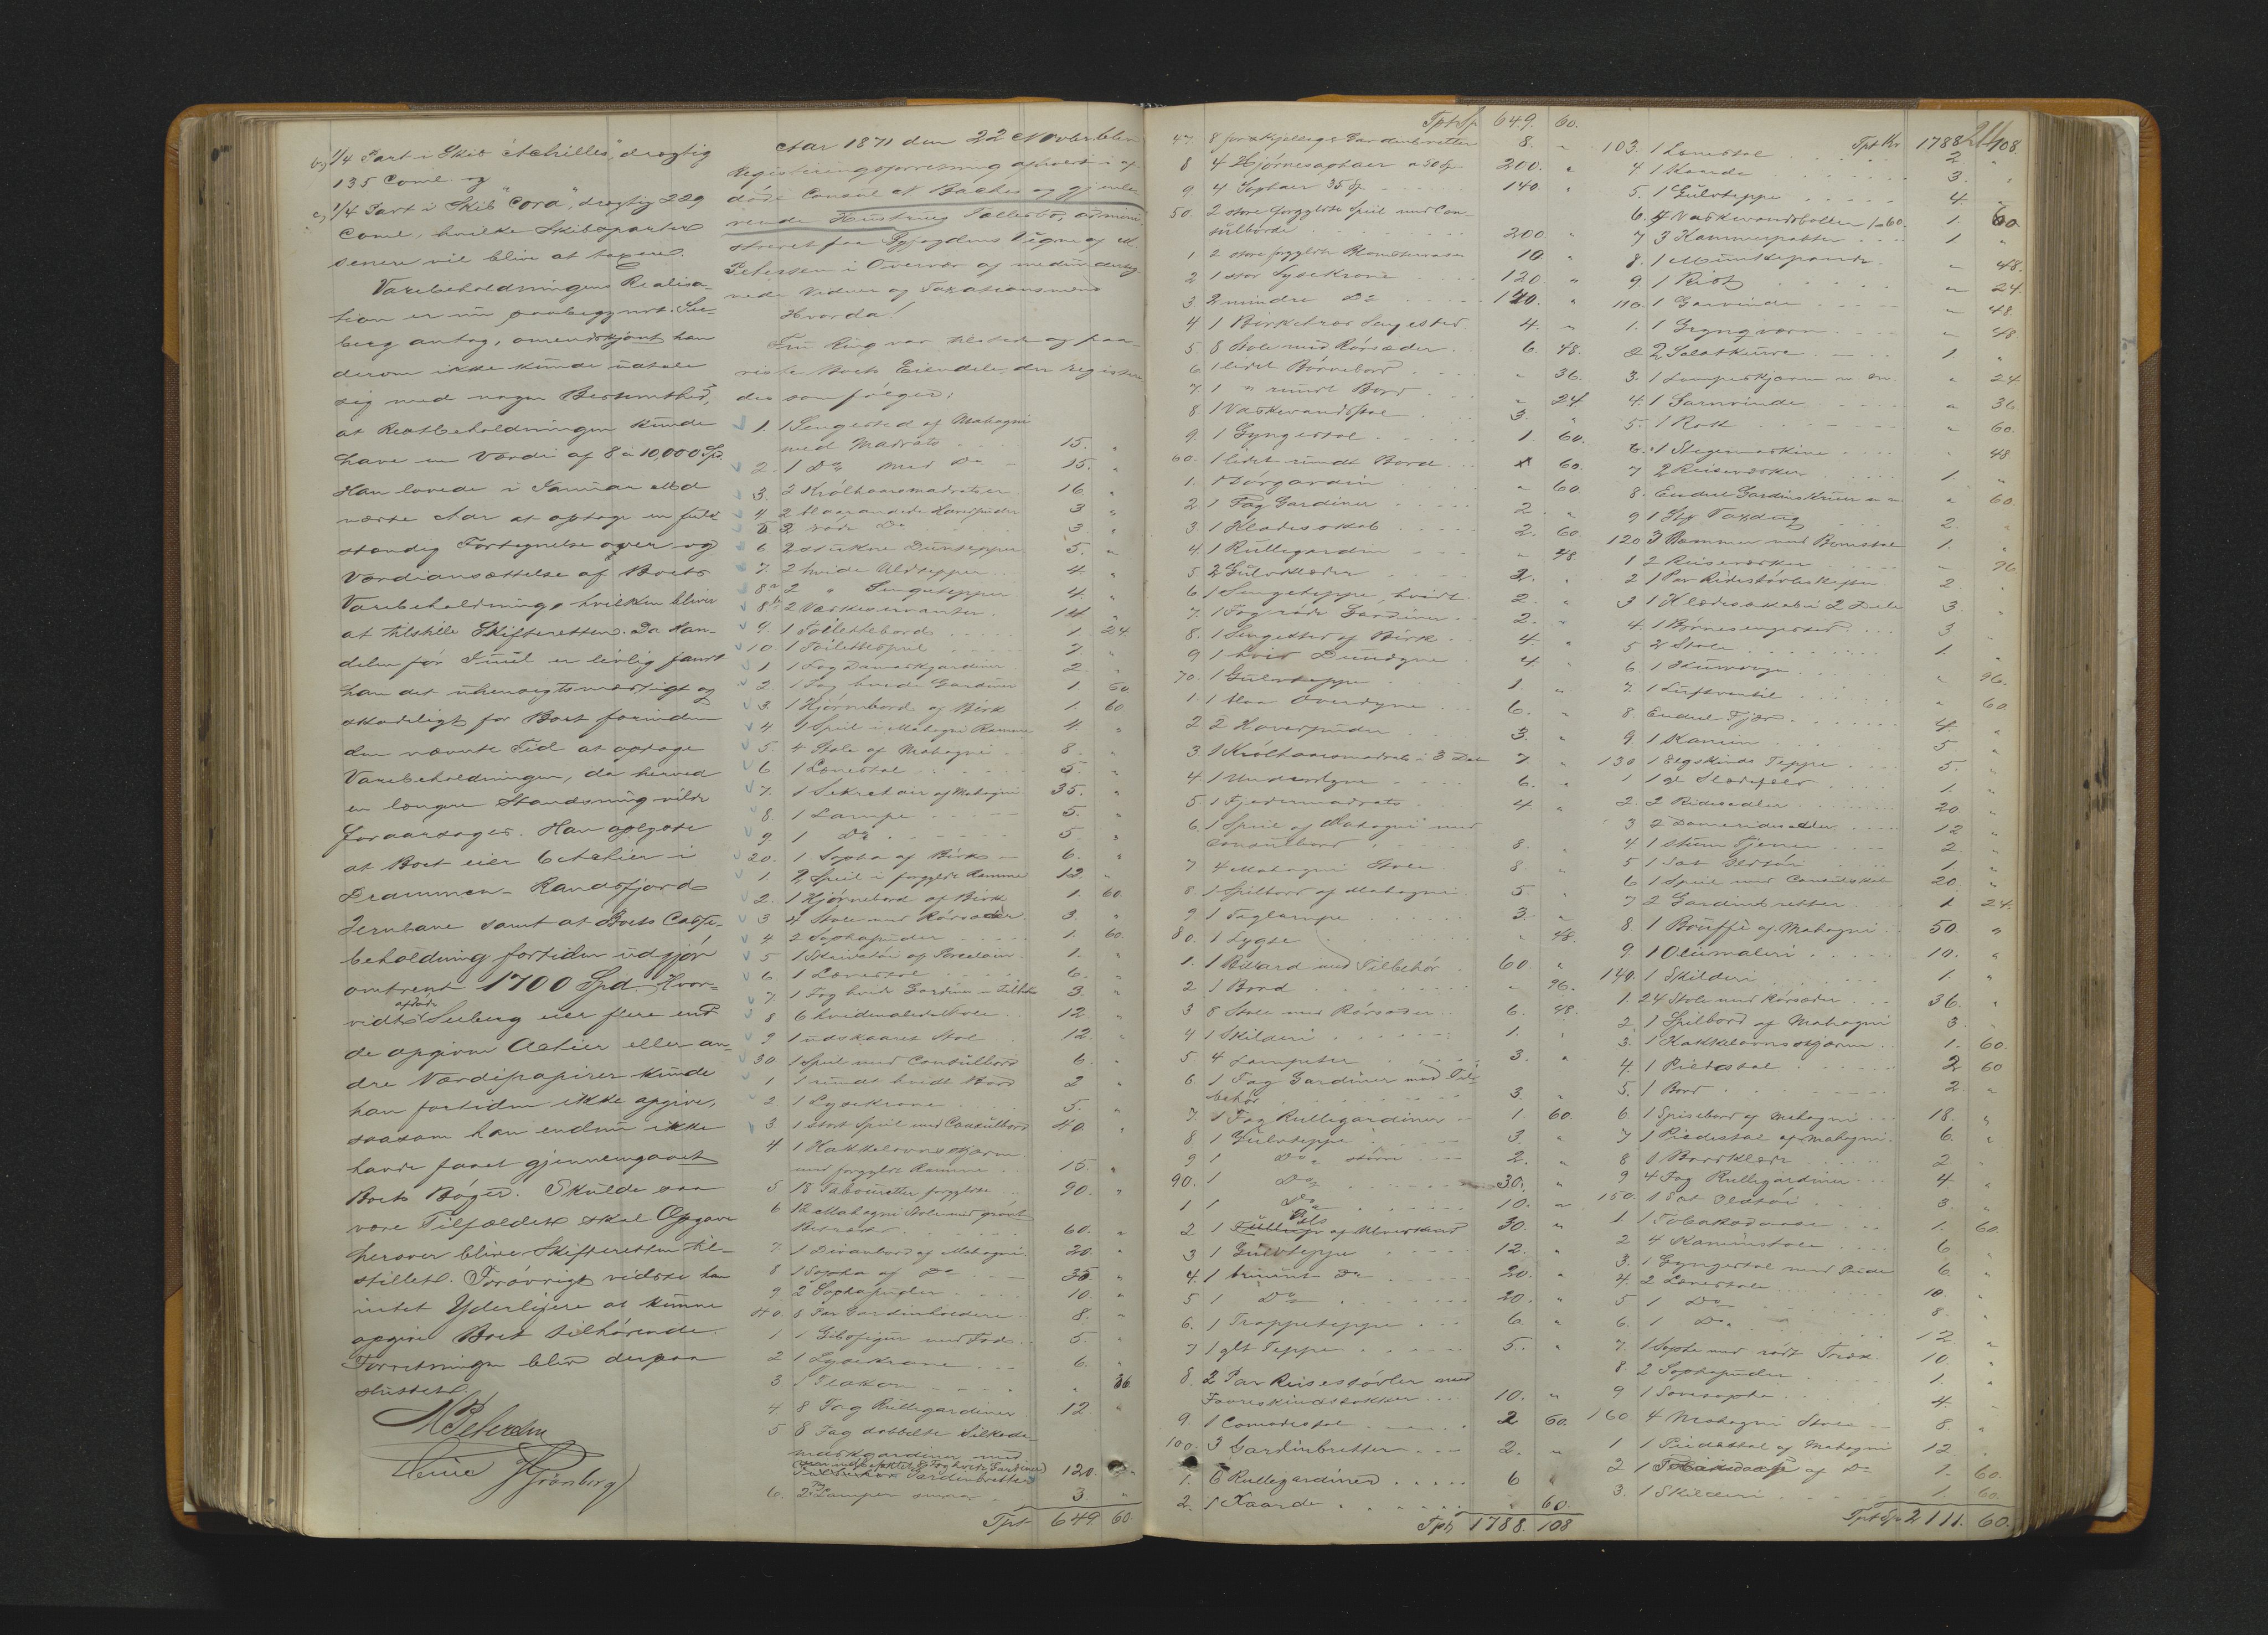 b) 1/4 Part i Skib "Achilles", drægtig
135 Coml. og
c) 1/4 Part i Skib "Cora", drægtig 229
Coml, hvilke Skibsparter
senere vil blive at taxere.
Varebeholdningens Realisa-
tion er nu paabegyndt. See-
berg antog, omendskjønt han
derom ikke kunde udtale
sig med nogen Bestemthed,
at Restbeholdningen kunde
have en Værdi af 8 à 10,000 Spd.
Han lovede i Januar Md
næste Aar at optage en fuld-
stændig Fortegnelse over og
Værdiansættelse af Boets
Varebeholdning, hvilken bliver
at tilstille Skifteretten. Da Han-
delen før Juul er livlig fandt
han det uhensigtsmæssigt og
skadeligt for Boet forinden
den nævnte Tid at optage
Varebeholdningen, da herved
en længere Standsning vilde
foraarsages. Han oplyste
at Boet eier 6 Actier i
Drammen-Randsfjord
Jernbane samt at Boets Casse-
beholdning fortiden udgjør
omtrent 1700 Spd. Hvor-
vidt afdøde Seeberg eier flere end
de opgivne Actier eller an-
dre Værdipapirer kunde
han fortiden ikke opgive,
saasom han endnu ikke
havde faaet gjennemgaaet
Boets Bøger. Skulde saa
være Tilfældet skal Opgave
herover blive Skifteretten til-
stillet. Forøvrigt vidste han
intet Yderligere at kunne
opgive Boet tilhørende.
Forretningen blev derpaa
sluttet.
Petersen
Grønberg
Aar 1871 den 22 November blev
Registreringsforretning afholdt i af-
døde Consul N Bache og gjenle-
vende Hustrues Fællesbo, admini-
streret for Byfogdens Vegne af
Petersen i Overvær af medunderteg-
nede Vidner og Taxationsmænd
Hvorda!
Fru var tilstede og paa-
viste Boets Eiendele, der registre-
des som følger:
1. 1 Sengested af Mahogni
med Madrats 15. "
2. 1 Do med Do 15. "
3. 2 Krølhaarsmadratser 16 "
4 2 blaarandede Hovedpuder 3 "
5 2 røde Do 3 "
6 2 stukne Duntepper 5. "
7. 2 hvide Uldtepper 4. "
8a 2 " Sengetepper 4. "
8b 2 Vaskeservanter 14 "
9. 1 Toilettebord 1. 24.
10 1 Toilettespeil 2. "
1 1 Fag Damaskgardiner 2 "
2. 1 Fag hvide Gardiner 1. 60
3 1 Hjørnebord af Birk 1. 60
4 1 Speil i Mahogni Ramme 4. "
5. 4 Stole af Mahogni 8. "
6 1 Lænestol 5. "
7. 1 Sekretair af Mahogni 35. "
8. 1 Lampe 5. "
9. 1 Do 5. "
20. 1 Sopha af Birk 6. "
1. 2 Speil i forgyldt Ramme 12. "
2. 1 Hjørnebord af Birk 1. 60.
3 4 Stole med Rørsæder 3. "
4 2 Sophapuder 1. 60.
5 1 Skrivetøi af Porcelain 1. "
6. 1 Lænestol 6. "
7. 1 Fag hvide Gardiner m Tilbehør 3. "
8 6 hvidmalede Stole 12. "
9 1 udskaaret Stol 12. "
30 1 Speil med Consulbord 6. "
1 1 rundt hvidt Bord 2 "
2 1 Lysekrone 5. "
3 1 stort Speil med Consulbord 40. "
4 1 Kakkelovnsskjærm
med forgyldt Ramme 15. "
5 18 Tabouretter forgyldte 90. "
6 12 Mahogni Stole med grønt
Betræk 60. "
7. 1 Divanbord af Mahogni 20. "
8 1 Sopha af Do 35. "
9 2 Sophapuder 10. "
40. 8 Par Gardinholdere 8. "
1 1 Gibsfigur med Fod 5. "
2 1 Lysekrone 6. "
3. 1 Flakon " 36
4. 8 Fag Rullegardiner 12 "
5 8 Fag dobbelte Silkeda-
maskgardiner med
Tilbehør Gardinbretter 120. "
6. 2 Lamper 3. "
Tpt 649 60.
Tpt Sp 649. 60.
47. 8 forskjellige Gardinbretter 8. "
8 4 Hjørnesophaer a 50 Sp. 200. "
9 4 Sophaer 35 Sp. 140. "
50. 2 store forgyldte Speil med Con-
sulborde 200. "
1 2 store forgyldte Blomstervaser 10 "
2 1 stor Lysekrone 120 "
3 2 mindre Do 140. "
4 1 Birketræs Sengested 4. "
5. 8 Stole med Rørsæder 6. 48.
6 1 lidet Børnebord " 36.
7. 1 " rundt Bord " 24.
8 1 Vaskevandsstol 3. "
9. 1 Gyngestol 1. 60.
60. 1 lidet rundt Bord " 60.
1. 1 Dørgardin " 60.
2 1 Fag Gardiner 2. "
3. 1 Klædesskab 2. 60
4. 1 Rullegardin " 48
5. 2 Gulvklæder 2. "
6 1 Sengeteppe, hvidt 2. "
7. 1 Fag røde Gardiner 2. "
8. 1 Sengested af Birk 4. "
9 1 hvid Dundyne 4. "
70. 1 Gulvteppe 1. "
1. 1 blaa Overdyne 6. "
2 2 Hovedpuder 3. "
3 1 Krølhaarsmadrats i 3 Dele 7. "
4. 1 Underdyne 6. "
5. 1 Fjedermadrats 4. "
6. 1 Speil af Mahogni med
Consulbord 8. "
7 4 Mahogni Stole 8. "
8. 1 Spilbord af Mahogni 5. "
9 1 Taglampe 3. "
80. 1 Lygte " 48.
1. 1 Billard med Tilbehør 60. "
2 1 Bord " 96.
3 8 Stole med Rørsæder 6. 48.
4 1 Skilderi 1. "
5. 4 Lampetter 3. "
6. 1 Fag Gardiner med Til-
behør 3. "
7 1 Fag Rullegardiner 1. 60.
8. 1 Gulvteppe 3. "
9 1 Do større 2. "
90. 1 Do 30. "
1 1 Do 10. "
2 1 Pels af Ulveskind 30. "
3 1 Gulvteppe 12. "
4. 1 bruunt Do 20. "
5 1 Do 20. "
6. 1 Trappeteppe 6. "
7 1 glt Teppe 5. "
8. 2 Par Reisestøvler med
Faareskindssokker 10. "
9. 1 Comodestol 2 60.
100. 3 Gardinbretter 2. "
1. 6 Rullegardiner 6 "
2. 1 Kaarde " 60.
Tpt 1788. 108
214
Tpt Kr. 1788 108.
103. 1 Lænestol 2 "
4 1 Kaarde 3. "
5. 1 Gulvteppe 4. "
6. 4 Vaskevandsboller 1-60. 1. 60
7 3 Kammerpotter 1 "
8. 1 Munkepande " 48.
9. 1 Rist " 24.
110. 1 Garnvinde " 48.
1. 1 Grynqværn " 48
2 2 Salatkurve 1. "
3. 1 Lampeskjærm m m. " 24
4. 1 Garnvinde " 36
5. 1 Rok " 60.
6. 1 Stegemaskine " 48
7 2 Reisevæsker 1. "
8. Endeel Gardinskruer m m. " 60.
9 1 Stk Voxdug 2. "
120 3 Rammer med Bomstol 1. "
1 2 Reisevæsker " 96.
2 1 Par Ridestøvleskafter 2. "
3 1 Klædesskab i 2 Dele 3. "
4. 1 Børnesengested 3 "
5 2 Stole 1. "
6 1 " 96.
7. 1 Luftventil " 60
8. Endeel Fjær 4. "
9. 1 Kanin 5 "
130 1 Elgskinds Teppe 5. "
1 1 gl Slædefæld 1. "
2. 2 Ridesadler 20 "
3 2 Dameridesadler 12 "
4 1 stum Tjener 2. "
5 1 Sæt Ildtøi 1. "
6 1 Speil med Consulskab 20. "
7 2 Gardinbretter 1. 24.
8. 1 Bouffé af Mahogni 50. "
9. 1 Oliemaleri 10. "
140. 1 Skilderi 1. "
1. 24 Stole med Rørsæder 36. "
2. 1 Spilbord af Mahogni 3. "
3. 1 Kakkelovnsskjærm 1. 60.
4. 1 Piedestal 2 60
5. 1 Bord 2. "
6. 1 Spisebord af Mahogni 18. "
7 1 Piedestal af Mahogni 6. "
8 1 Bordklæde 2 "
9 4 Fag Rullegardiner 4 "
150. 1 Sæt Ildtøi 3. "
1 1 Tobaksdaase 1. 60.
2 4 Kaminstole 6. "
3. 1 Gyngestol med Pude 6. "
4. 2 Lænestole 10. "
5 1 Do 8. "
6. 1 Do 12. "
7. 1 Sopha med rødt Træk 10. "
8. 2 Sophapuder 1. "
9 1 Sovesopha 4. "
160. 4 Mahogni Stole 8. "
1 1 Piedestal af Mahogni 12. "
2 1 af Do 1. 60.
3. 1 Skilderi 1. 60.
Tpt Sp 2111. 60.